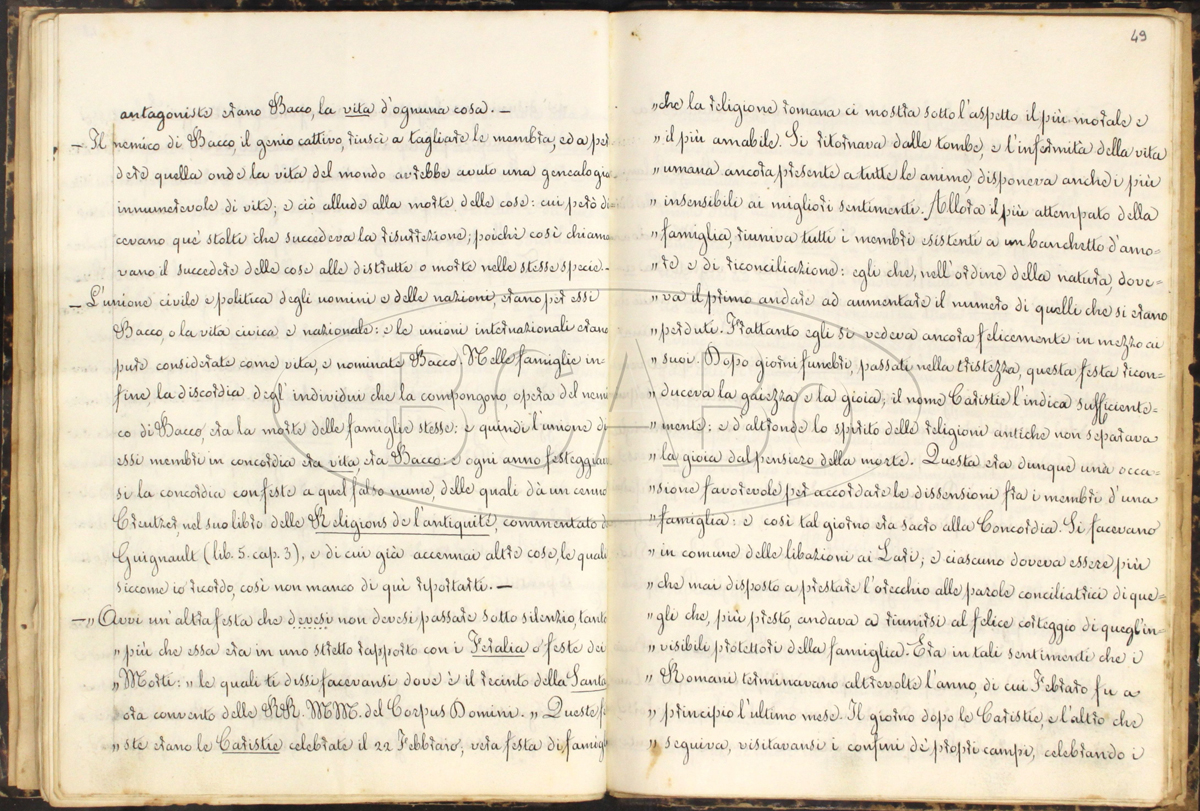 antagoniste erano Bacco, la vita d'ognuna cosa. —
— Il nemico di Bacco, il genio cattivo, riuscì a tagliare le membra, ed a per
dere quella onde la vita del mondo avrebbe avuto una genealogia
innumerevole di vite; e ciò allude alla morte delle cose: cui però di=
cevano que' stolti che succedeva la risurrezione; poichè così chiama
vano il succedere delle cose alle distrutte o morte nelle stesse specie. —
— L'unione civile e politica degli uomini e delle nazioni, erano per essi
Bacco, o la vita civica e nazionale: e le unioni internazionali erano
pure considerate come vita, e nominate Bacco. Nelle famiglie in=
fine, la discordia degl'individui che la compongono, opera del nemi
co di Bacco, era la morte delle famiglie stesse: e quindi l'unione di
essi membri in concordia era vita, era Bacco: e ogni anno festeggiava
si la concordia con feste a quel falso nume, delle quali dà un cenno
Creutzer, nel suo libro delle Religions de l'antiquité, commentato da
Guignault (lib. 5. cap. 3), e di cui già accennai altre cose, le quali
siccome io ricordo, così non manco di quì riportarti. —
— „ Avvi un'altra festa che devesi non devesi passare sotto silenzio, tanto
„ più che essa era in uno stretto rapporto con i Feralia o feste dei
„ Morti: „ le quali ti dissi facevansi dove è il recinto della Santa
ora convento delle RR. MM. del Corpus Domini. „ Queste fe
„ ste erano le Caristie celebrate il 22 Febbraro, vera festa di famigl
49
„ che la religione romana ci mostra sotto l'aspetto il più morale e
„ il più amabile. Si ritornava dalle tombe, e l'infermità della vita
„ umana ancora presente a tutte le anime, disponeva anche i più
„ insensibili ai migliori sentimenti. Allora il più attempato della
„ famiglia, riuniva tutti i membri esistenti a un banchetto d'amo=
„ re e di riconciliazione: egli che, nell'ordine della natura, dove=
„ va il primo andare ad aumentare il numero di quelli che si erano
„ perduti. Frattanto egli si vedeva ancora felicemente in mezzo ai
„ suoi. Dopo giorni funebri, passati nella tristezza, questa festa ricon=
„ duceva la gaiezza e la gioia; il nome Caristie l'indica sufficiente=
„ mente: e d'altronde lo spirito delle religioni antiche non separava
„ la gioia dal pensiero della morte. Questa era dunque una occa=
„ sione favorevole per accordare le dissensioni fra i membri d'una
„ famiglia: e così tal giorno era sacro alla Concordia. Si facevano
„ in comune delle libazioni ai Lari; e ciascuno doveva essere più
„ che mai disposto a prestare l'orecchio alle parole conciliatrici di que=
„ gli che, più presto, andava a riunirsi al felice corteggio di quegl'in=
„ visibili protettori della famiglia. Era in tali sentimenti che i
„ Romani terminavano altrevolte l'anno, di cui Febraro fu a
„ principio l'ultimo mese. Il giorno dopo le Caristie, e l'altro che
„ seguiva, visitavansi i confini de' propri campi, celebrando i
BCABO